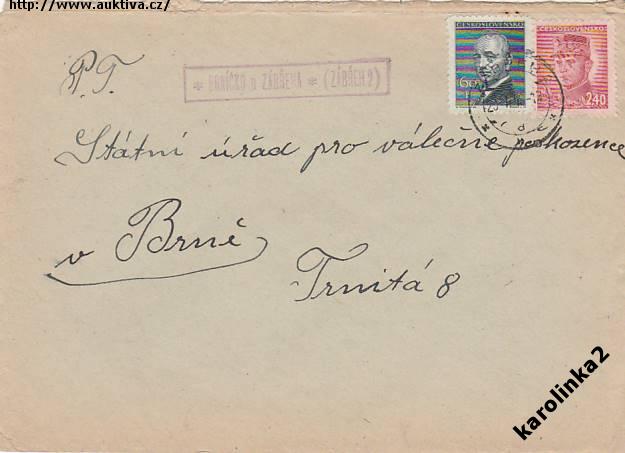 http://www.auktiva.cz/
ČESKOSLOVENSKO
60
ČESKOSLOVENSKO
2,40
P. T.
* HNÍČKO u ZÁBŘEHA * (ZÁBŘEH 2)
Státní úřad pro válečné poškozence
v Brně
Trnitá 8
karolinka2